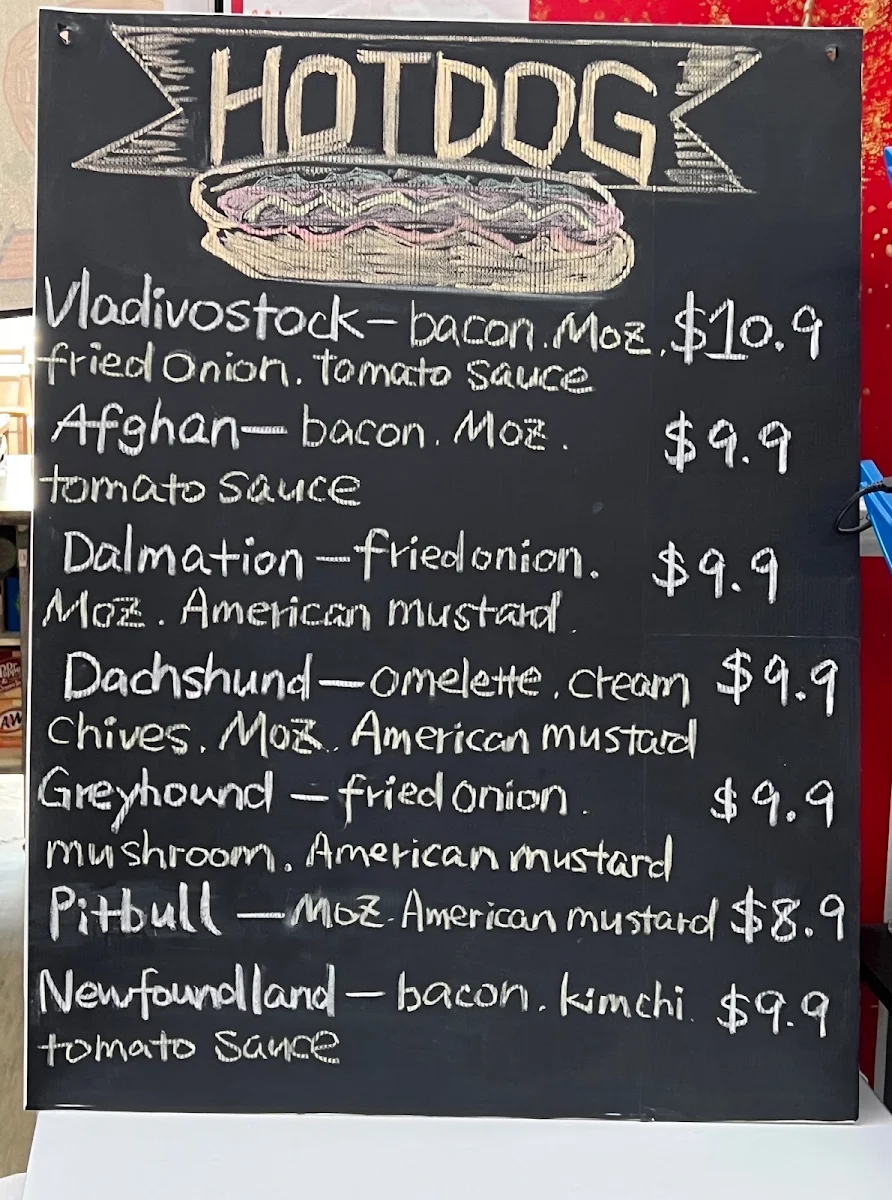 HOTDOG
Vladivostock - bacon. Moz. $10.9
fried onion. tomato sauce
Afghan — bacon. Moz. $9.9
tomato sauce
Dalmation — fried onion. $9.9
Moz. American mustard.
Dachshund — omelette. cream $9.9
Chives. Moz. American mustard
Greyhound — fried onion. $9.9
mushroom. American mustard
Pitbull — Moz. American mustard $8.9
Newfoundland — bacon. kimchi. $9.9
tomato sauce
A&W